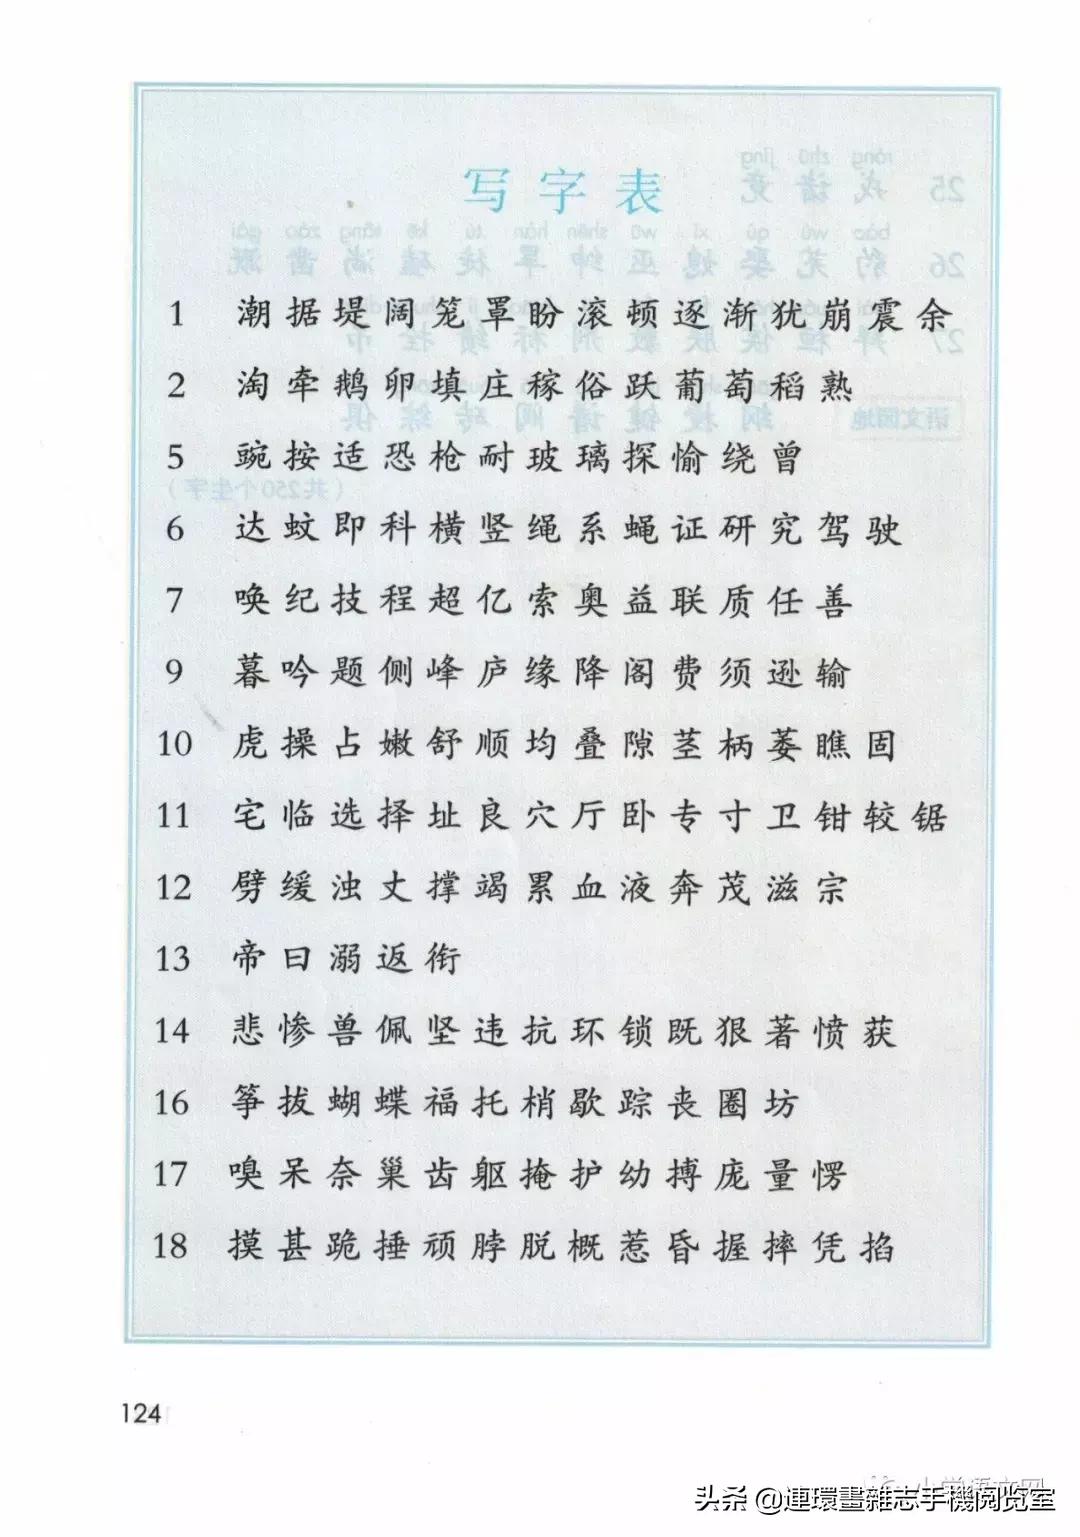 写字表
1 潮据堤阔笼罩盼滚顿逐渐犹崩震余
2 淘牵鹅卵填庄稼俗跃葡萄稻熟
5 豌按适恐枪耐玻璃探愉绕曾
6 达蚊即科横竖绳系蝇证研究驾驶
7 唤纪技程超亿索奥益联质任善
9 暮吟题侧峰庐缘降阁费须逊输
10 虎操占嫩舒顺均叠隙茎柄萎瞧固
11 宅临选择址良穴厅卧专寸卫钳较锯
12 劈缓浊丈撑竭累血液奔茂滋宗
13 帝曰溺返衔
14 悲惨兽佩坚违抗环锁既狠著愤获
16 筝拔蝴蝶福托梢歇踪丧圈坊
17 嗅呆奈巢齿躯掩护幼搏庞量愣
18 摸甚跪捶顽脖脱概惹昏握摔凭掐
124
小学语文网
头条 @連環畫雜志手機阅览室